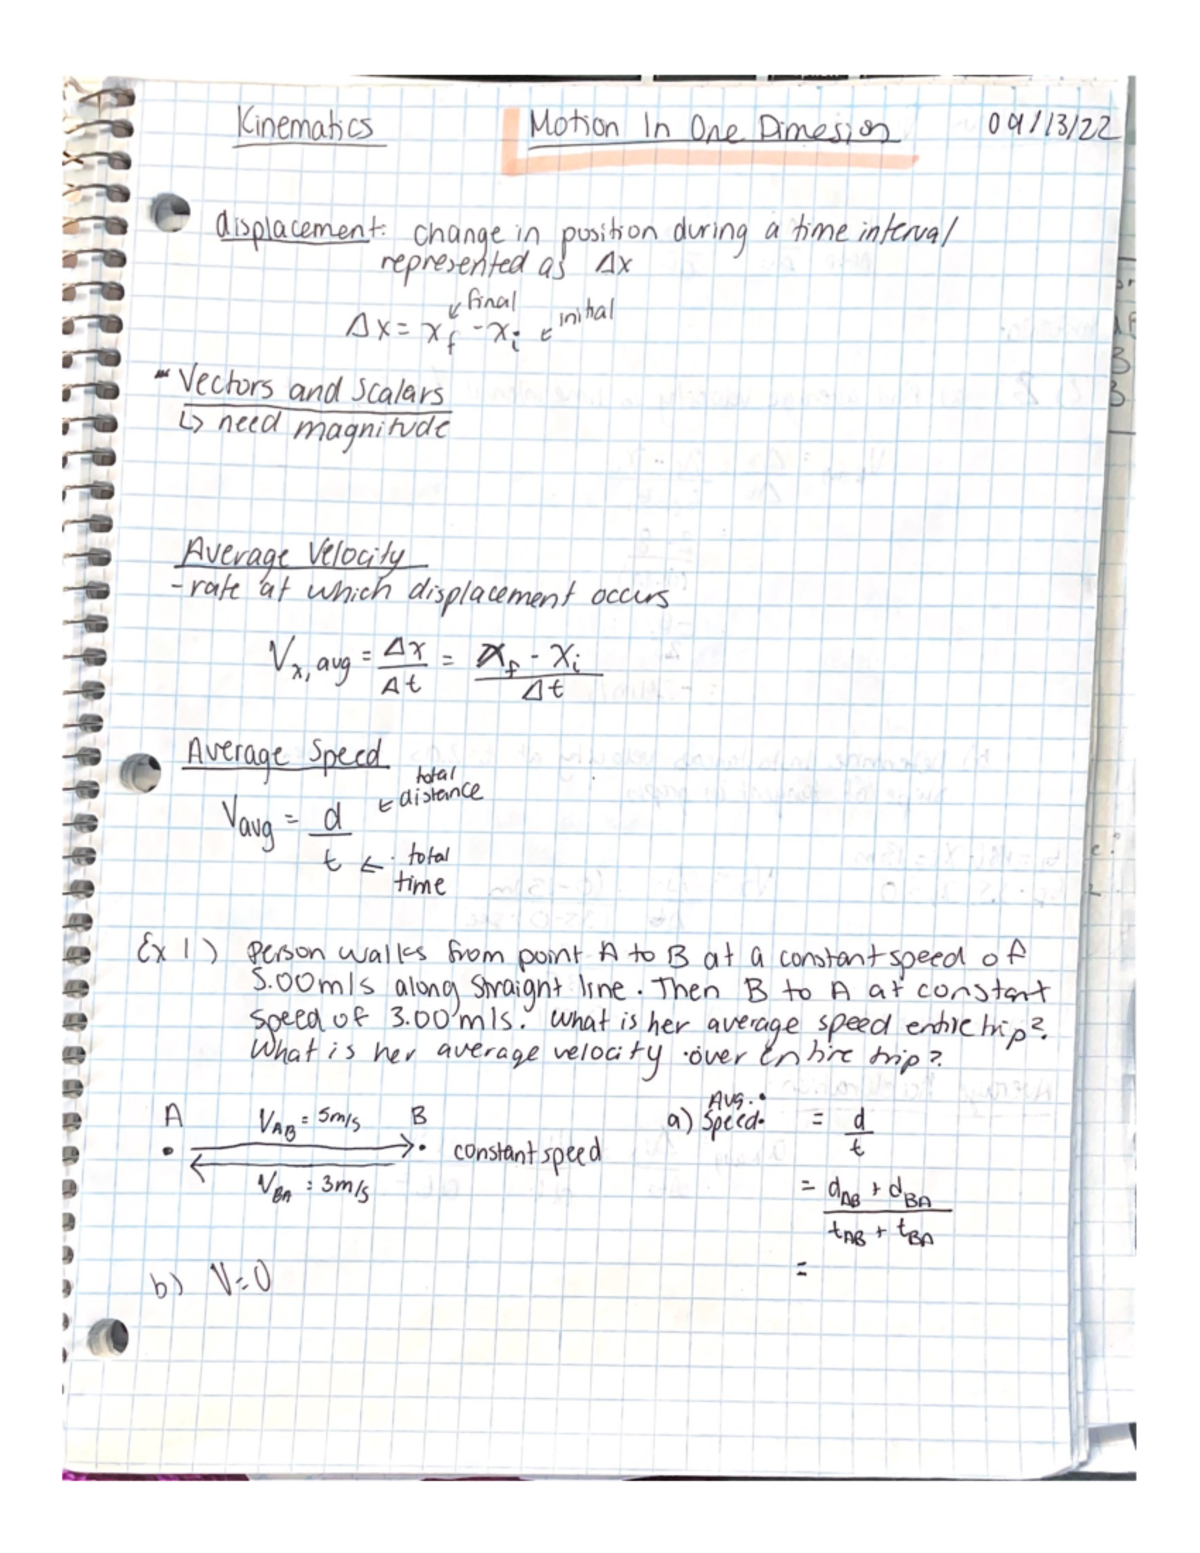 Kinematics Motion In One Dimesion 09/13/22
displacement: change in position during a time interval
represented as Δx
↙ final
Δx = xf - xi ← initial
- Vectors and Scalars
↳ need magnitude
Average Velocity
- rate at which displacement occurs
Vx, avg = Δx/Δt = xf - xi/Δt
Average Speed
Vavg = d/t
← total distance
← total time
Ex 1) Person walks from point A to B at a constant speed of
5.00m/s along straight line. Then B to A at constant
speed of 3.00 m/s. What is her average speed entire trip?
What is her average velocity over entire trip?
A VAB = 5m/s B
constant speed
VBA = 3m/s
a) Avg. Speed = d/t
= dAB + dBA / tAB + tBA
=
b) V=0